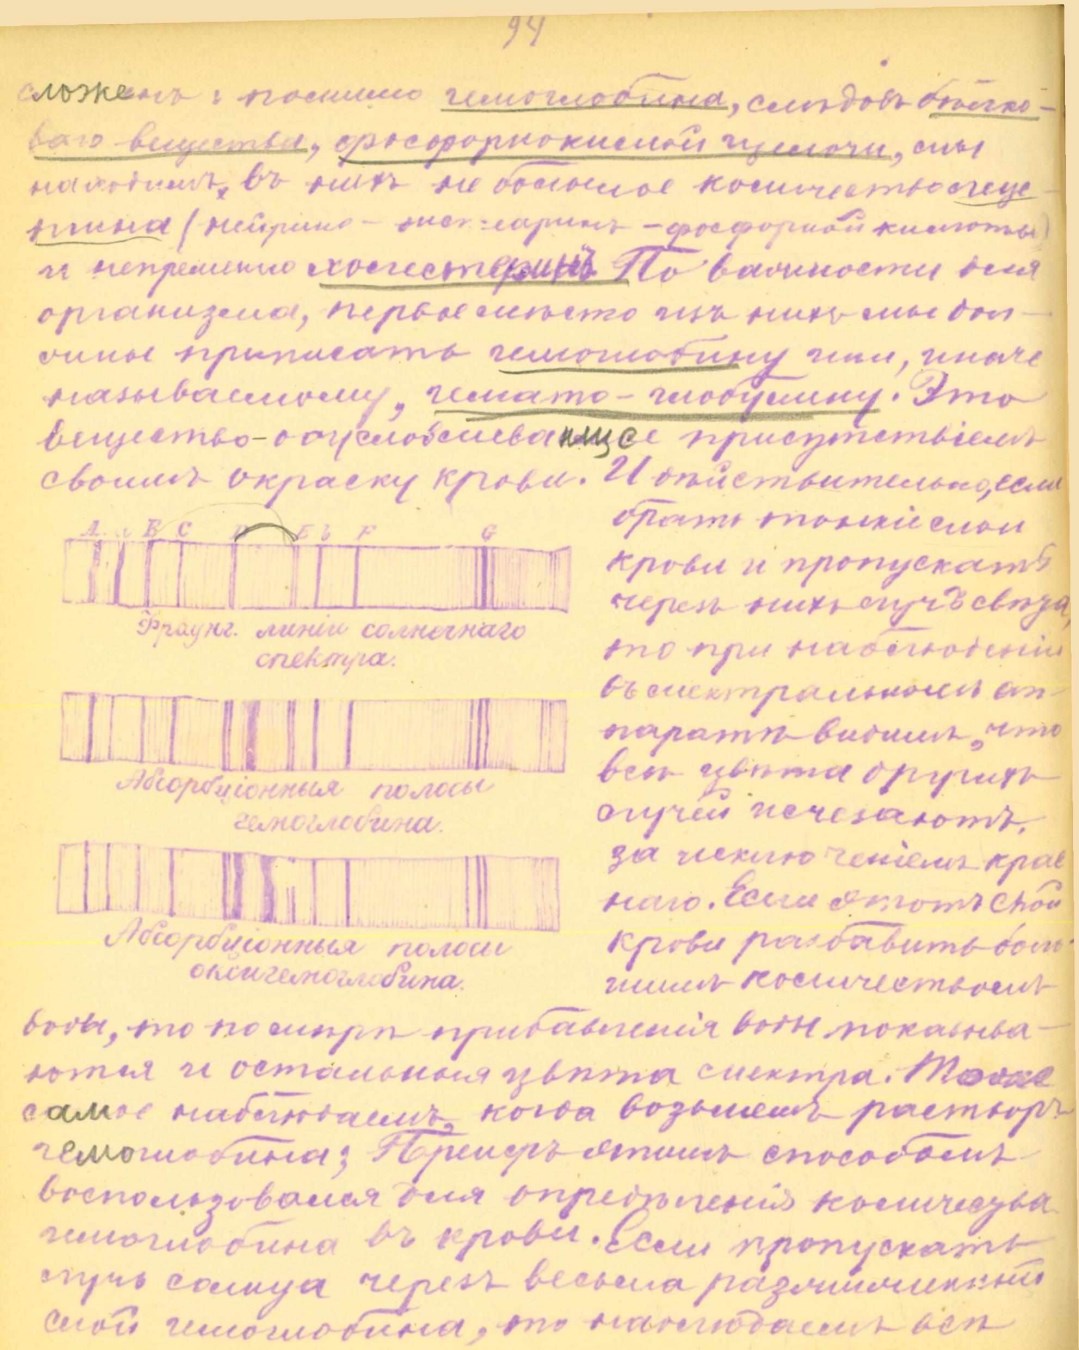 94
сложенъ: помимо гемоглобина, слѣдовъ бѣлко-
ваго вещества, фосфорнокислой щелочи, мы
находимъ, въ нихъ не большое количество леце-
тина (нейрино - - фосфорной кислоты)
и непремѣнно холестеринъ. По важности для
организма, первое мѣсто изъ нихъ мы дол-
жны приписать гемоглобину или, иначе
называемому, гемато-глобулину. Это
вещество-обусловливающее присутствіемъ
своимъ окраску крови. И дѣйствительно, если
брать тонкіе слои
крови и пропускать
черезъ нихъ лучъ свѣта,
то при наблюденіи
въ спектральномъ ап-
паратѣ видимъ, что
всѣ цвѣта другихъ
лучей исчезаютъ,
за исключеніемъ крас
наго. Если этотъ слой
крови разбавить боль-
шимъ количествомъ
A B C D E b F G
Фраунг. линіи солнечнаго
спектра.
Абсорбціонныя полосы
гемоглобина.
Абсорбціонныя полосы
оксигемоглобина.
воды, то по мѣрѣ прибавленія воды показыва-
ются и остальныя цвѣта спектра. Тоже
самое наблюдаемъ, когда возьмемъ растворъ
гемоглобина; Прейеръ этимъ способомъ
воспользовался для опредѣленія количества
гемоглобина въ крови. Если пропускать
лучъ солнца черезъ весьма разжиженный
слой гемоглобина, то наблюдаемъ всѣ